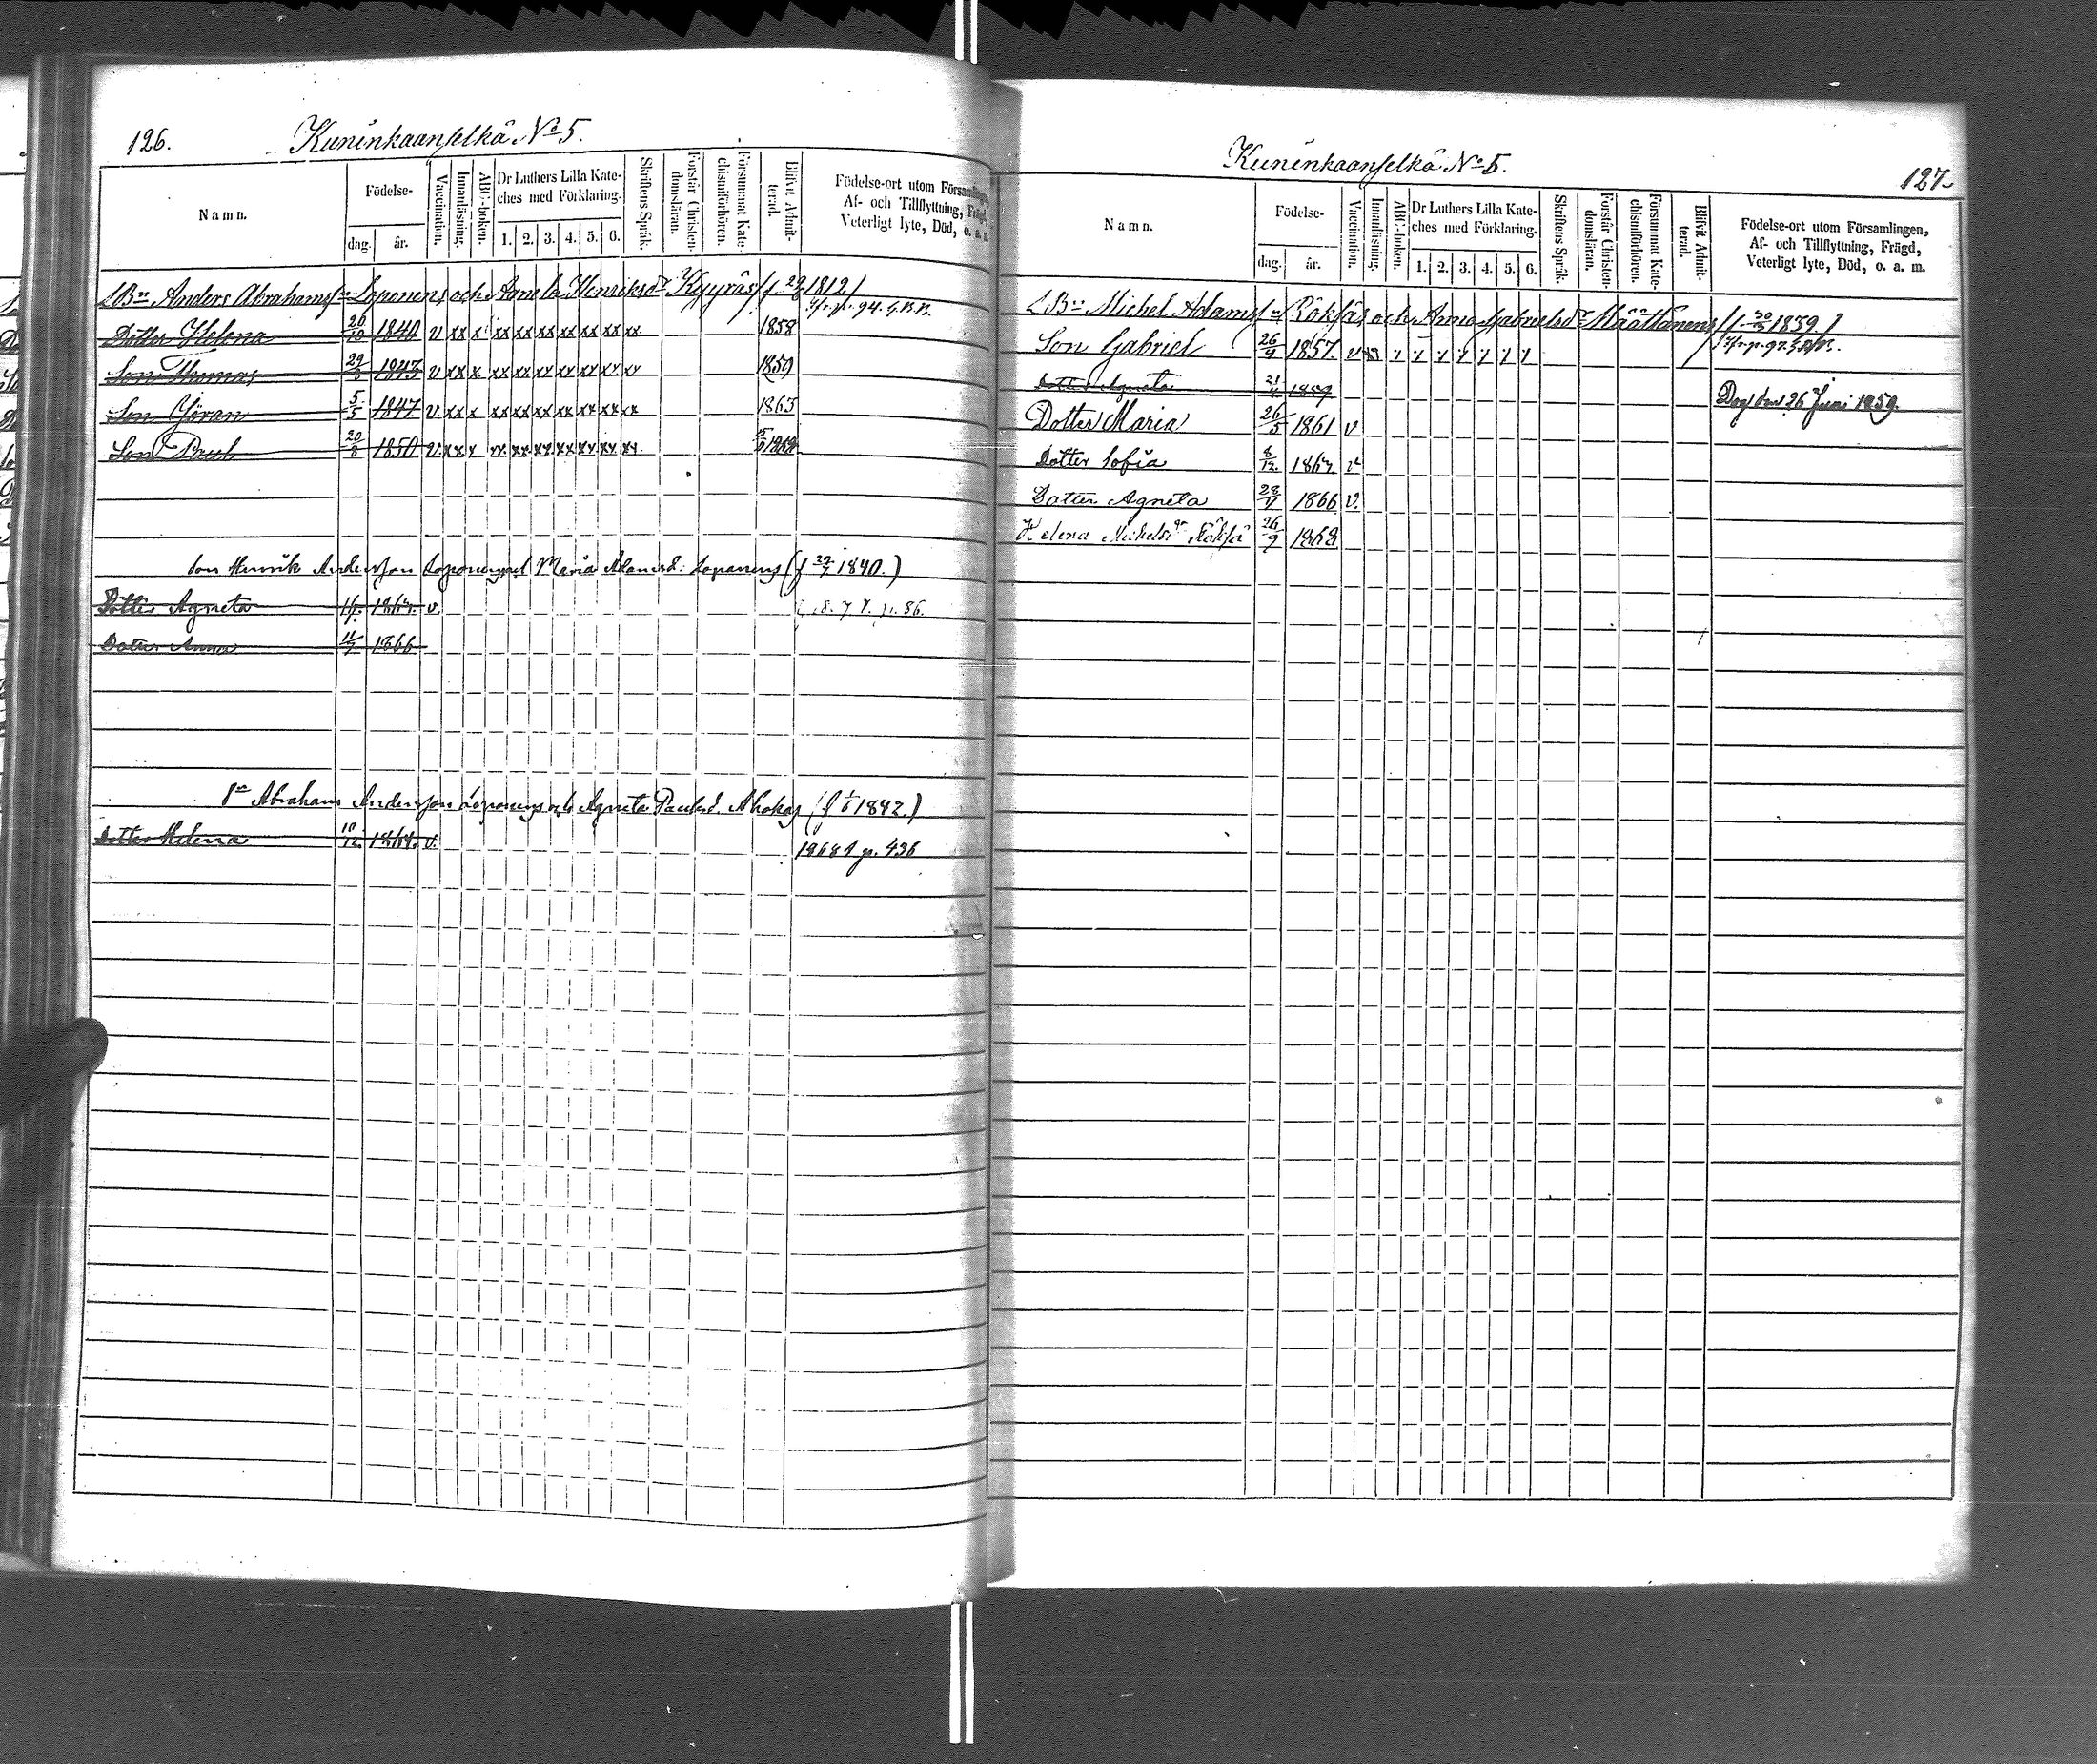 126. Kuninkaanselkä No 5.
Namn. Födelse- dag. år. Vaccination. Innanläsning. ABC-boken. Dr Luthers Lilla Kateches med Förklaring. 1. 2. 3. 4. 5. 6. Skriftens Språk. Förstår Christendomsläran. Försummat Katechismiförhören. Blifvit Admitterad. Födelse-ort utom Församlingen, Af- och Tillflyttning, Frägd, Veterligt lyte, Död, o. a. m.
LBn Anders Abrahamsson Loponens och Agneta Henriksdr Kyyräs (f 1812)
p. 94. G.B.B.
Dotter Helena 26/10 1840 v xx x xx xx xx xx xx xx xx 1858
Son Thomas 29/8 1843 v xx x xx xx xx xx xx xx xx 1859
Son Göran 5/5 1847 v xx x xx xx xx xx xx xx xx 1863
Son Paul 20/8 1850 v. xx x xx. xx xx xx xx xx xx
Son Henrik Andersson Loponens och Maria Adamsd. Loponens (f 1840.)
Dotter Agneta v. p. 86.
Dotter Anna 11/7 1866
Sn Abraham Andersson Loponens och Agneta Paulsd. Ahokas (f 1842.)
Dotter Helena 10/12 1864. v. 1868 p. 436
Kuninkaanselkä No 5. 127.
Namn. Födelse- dag. år. Vaccination. Innanläsning. ABC-boken. Dr Luthers Lilla Kateches med Förklaring. 1. 2. 3. 4. 5. 6. Skriftens Språk. Förstår Christendomsläran. Försummat Katechismiförhören. Blifvit Admitterad. Födelse-ort utom Församlingen, Af- och Tillflyttning, Frägd, Veterligt lyte, Död, o. a. m.
LBn Michel Adamsson Röksäs och Anna Gabrielsdr Määttänens
p. 97. G.B.B.
Son Gabriel 26/9 1857. v
Dotter Agneta 21/4 1859 Dog den 26 Juni 1859.
Dotter Maria 26/5 1861 v
Dotter Sofia 8/12. v
Dotter Agneta 1866 v.
Helena Michelsdr 26/9 1868